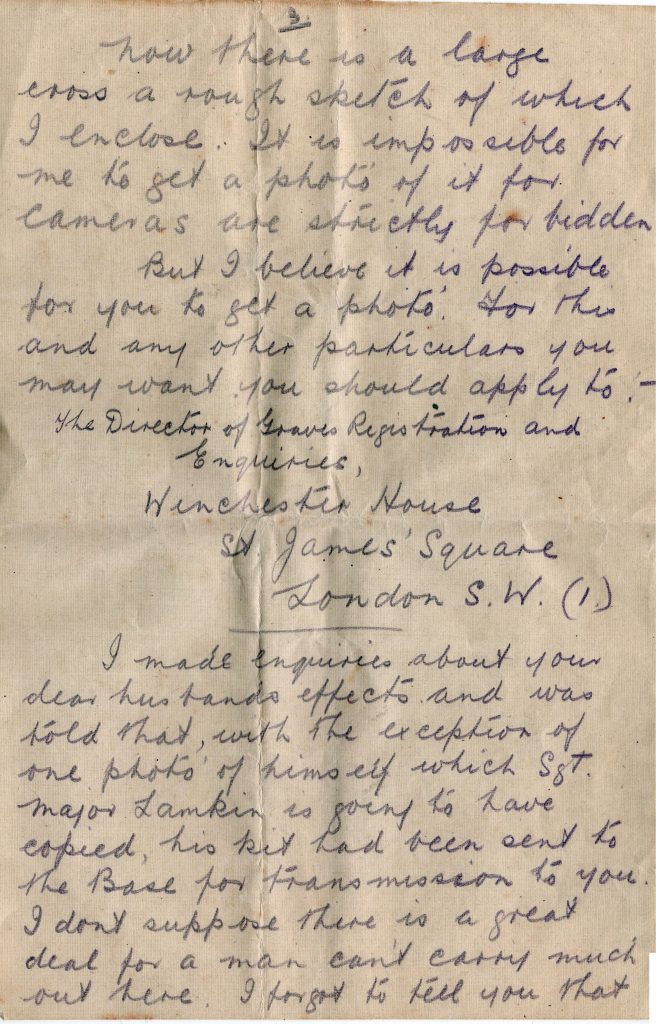 3.
now there is a large
cross a rough sketch of which
I enclose. It is impossible for
me to get a photo' of it for
cameras are strictly forbidden
But I believe it is possible
for you to get a photo'. For this
and any other particulars you
may want you should apply to:-
The Director of Graves Registration and
Enquiries,
Winchester House
St. James' Square
London S.W. (1.)
I made enquiries about your
dear husbands effects and was
told that, with the exception of
one photo' of himself which Sgt.
Major Lamkin is going to have
copied, his kit had been sent to
the Base for transmission to you.
I dont suppose there is a great
deal for a man can't carry much
out here. I forgot to tell you that